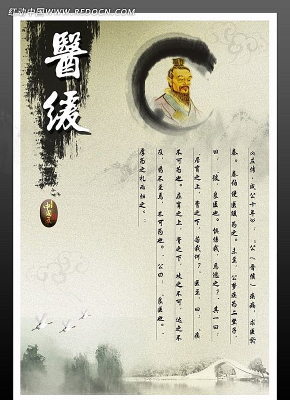 红动中国 WWW.REDOCN.COM
醫緩
《左传·成公十年》：“公（晋侯）疾病，求医於
秦。秦伯使医缓为之。未至，公梦疾为二竖子，
曰：‘彼，良医也。惧伤我，焉逃之？’其一曰：
‘居肓之上，膏之下，若我何？’医至，曰：‘疾
不可为也。在肓之上，膏之下，攻之不可，达之不
及，药不至焉，不可为也。’公曰：‘良医也。’
厚为之礼而归之。”